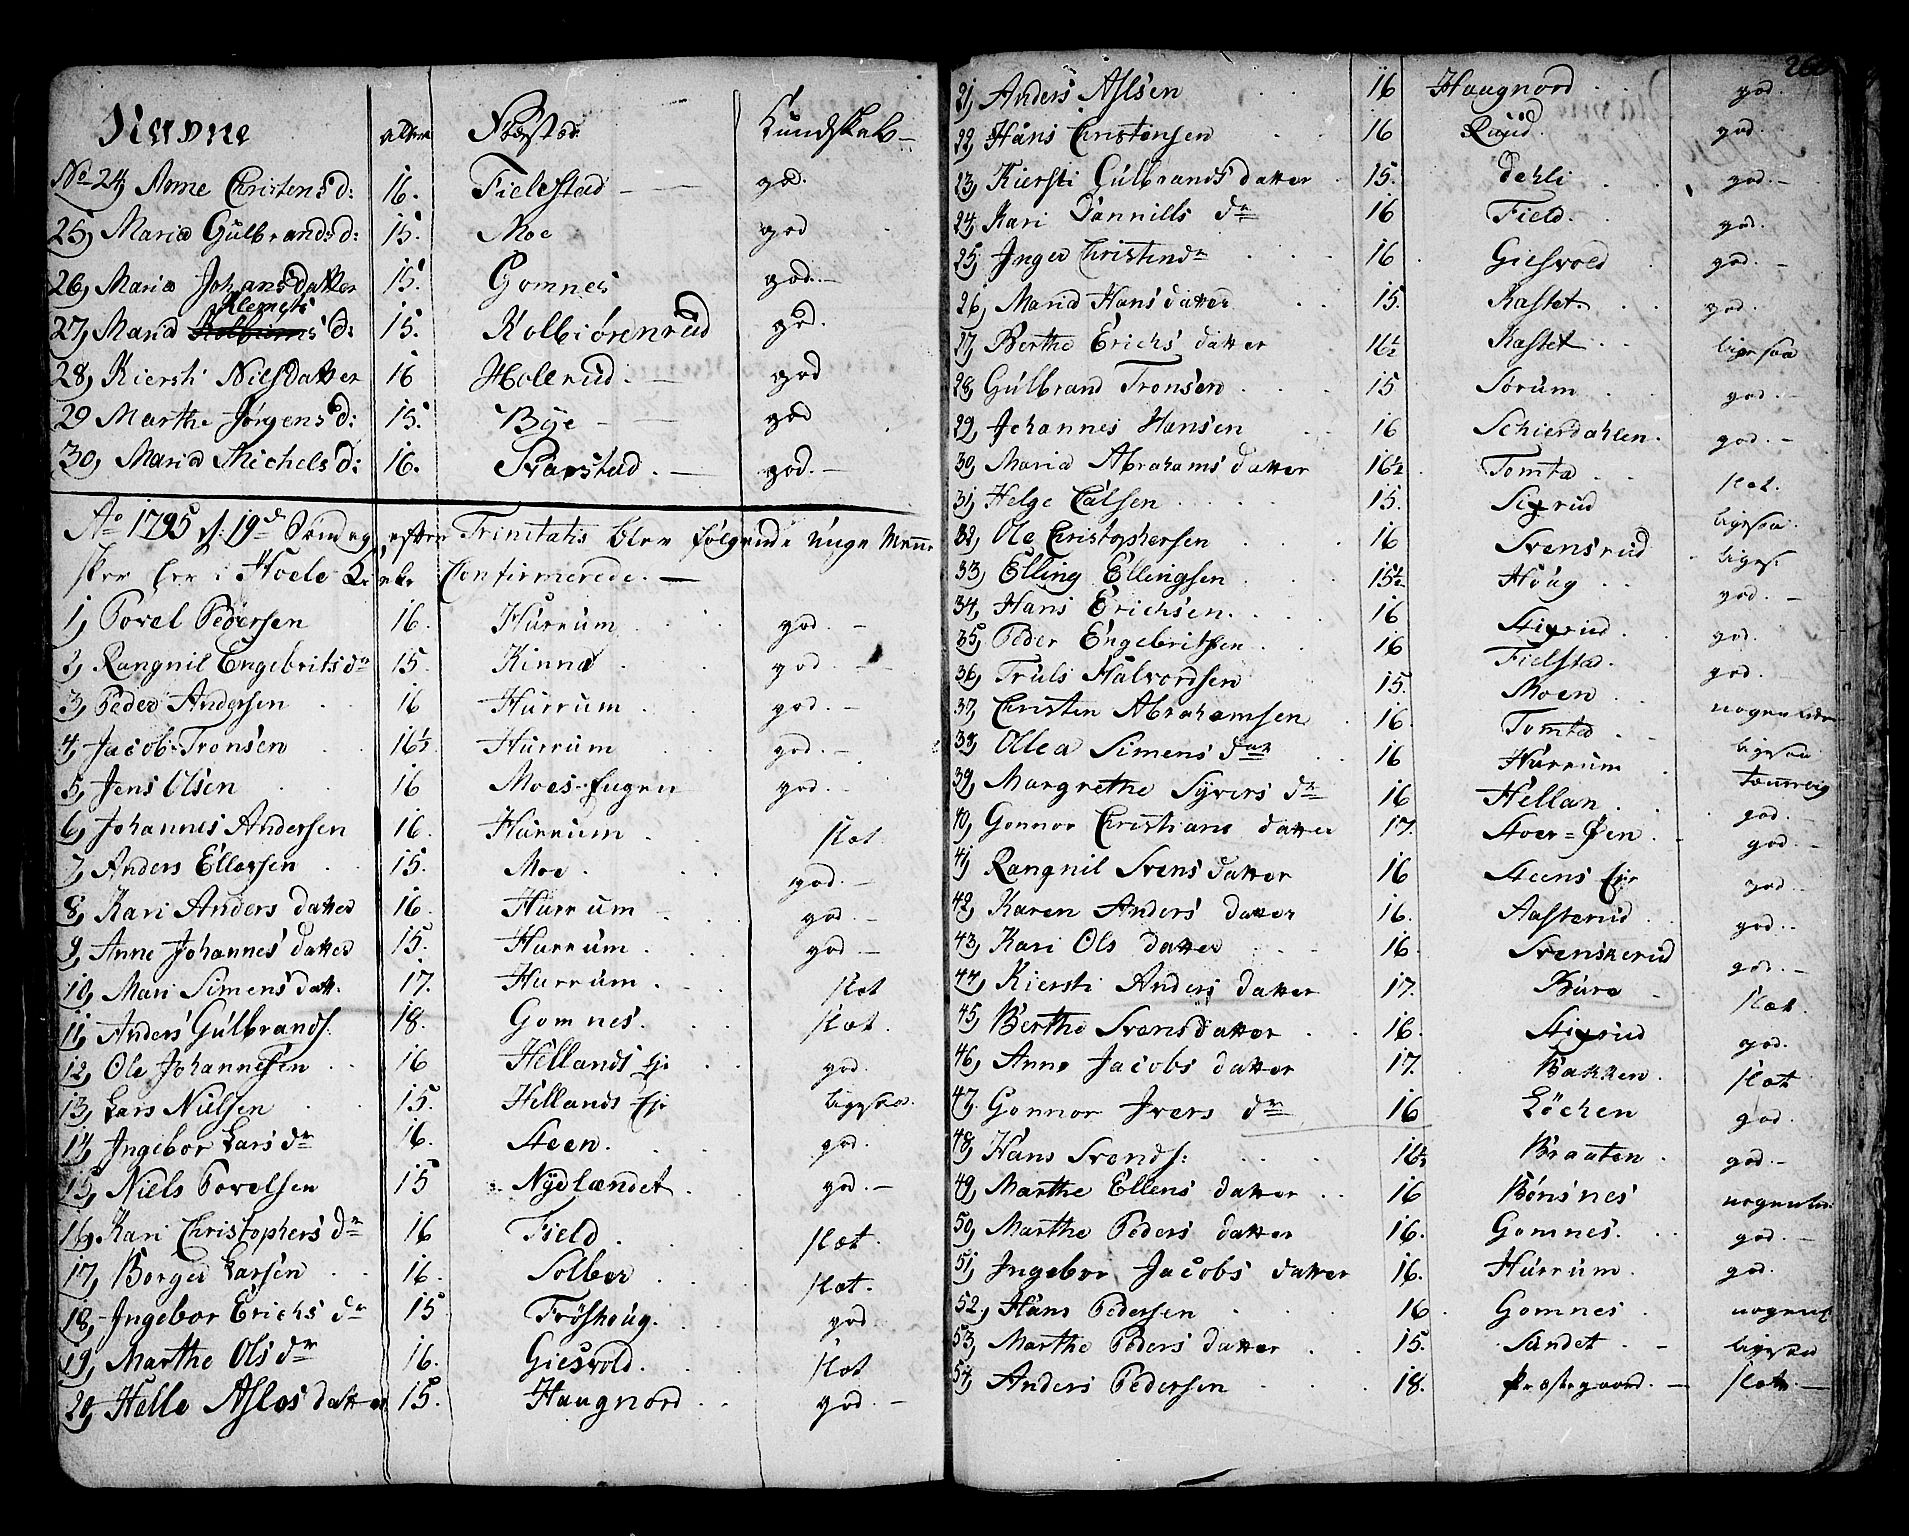 Navne alder Præstæd. Kundskab
No 24, Anne Christensd: 16. Fielestad god.
25, Maria Gulbrandsd: 15. Moe god
26, Maria Johansdatter 15. Gomnes god.
Klemets
27, Maria d: 15. Kolbiørenrud god.
28, Kiersti Nilsdatter 16 Hollerud. god
29 Marthe Jørgensd: 15. Bye god
30, Maria Michelsd: 16. Svarstad. god.
Ao 1795 d. 19de Søndag efter Trinitatis blev følgende unge Menne
sker her i Hoele Kirke Confirmerede.
1, Povel Pedersen 16. Hurrum god.
2, Rangnil Engebritsdr 15. Kinna god.
3, Peder Andersen 16 Hurrum god.
4, Jacob Tronsen 16½. Hurrum god.
5, Jens Olsen 16 Moes-Eugen god.
6, Johannes Andersen 16. Hurrum slet.
7, Anders Ellevsen 15. Moe. god.
8, Kari Anders datter 16. Hurrum god.
9, Anne Johannes datter 15. Hurrum god.
10, Mari Simens datt. 17. Hurrum slet
11, Anders Gulbrands. 18. Gomnes. slet.
12, Ole Johannesen 16 Hellands Eje god.
13, Lars Nielsen 15. Hellands Eje ligesaa.
14, Ingebor Lars dr 16. Steen. god.
15, Niels Povelsen 15 Nydlændet god.
16, Kari Christophers dr 16 Field. slet.
17, Borger Larsen 16. Solber slet.
18, Ingebor Erichs dr 15 Frøshoug. god
19, Marthe Ols dr 16. Giesvold. slet
20, Helle Asles datter 15. Haugnord god.
260
21, Anders Aslsen 16 Haugnord god.
22, Hans Christensen 16 Ruud. god.
23, Kiersti Gulbrands datter 15. Dehli god.
24, Kari Dannills dr 16 Field. god.
25, Inger Christendr 16. Giesvold god.
26, Maria Hans datter 15. Rastet god.
27, Berthe Erichs datter 16½ Rastet ligesaa
28, Gulbrand Tronsen 15 Sørum god.
29, Johannes Hansen 16 Schierdahlen. god.
30, Maria Abrahams datter 16½ Tomta slet.
31, Helge Calsen 15. Sigrud ligesaa.
32, Ole Christophersen 16 Svensrud liges:
33, Elling Ellingsen 15½ Houg god.
34, Hans Erichsen. 16 Stixrud god.
35, Peder Engebritsen 16 Fielstad. god.
36, Truls Halvordsen 15. Moen
37, Christen Abrahamsen 16. Tomta ligesaa
38, Ollea Simens datr 16 Hurrum temmelig
39, Margrethe Syvers dr 16 Hellan. god.
40, Gonnor Christians datter 17. Stver=Øen god.
41, Rangnil Svens datter 16 Steens Eje god.
42, Karen Anders datter 16. Aasterud god.
43, Kari Ols datter 16. Svenskerud god.
44, Kiersti Anders datter 17. Bure slet.
45, Berthe Svensdatter 16. Stixrud god.
46, Anne Jacobs datter 17. Bakken. slet
47, Gonnor Ivers dr 16 Løchen god.
48, Hans Svends: 16½ Braaten. god.
49, Marthe Ellens datter 16 Bønsnes
50, Marthe Peders datter 16. Gomnes. god.
51, Ingebor Jacobs datter 16. Hurrum. god.
52, Hans Pedersen 16 Gomnes
53, Marthe Peders datter 15. Sandet ligesaa
54, Anders Pedersen 18. Præstegaard. slet.